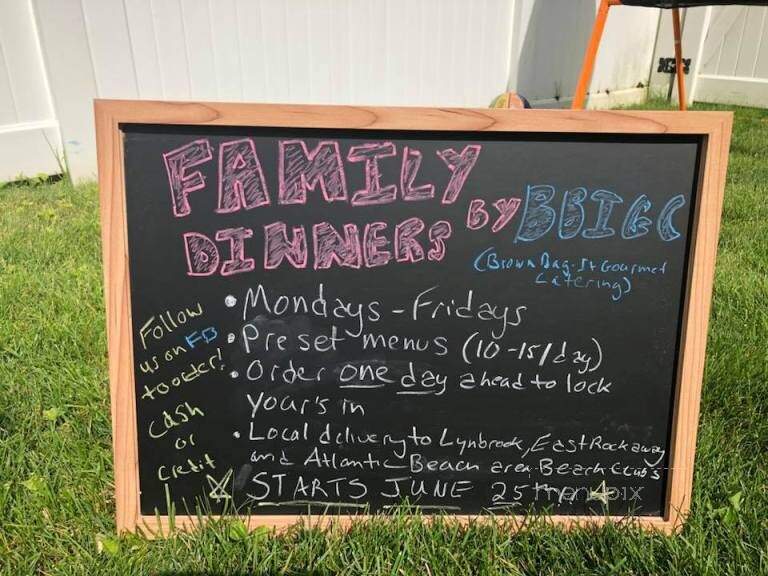 FAMILY
DINNERS BY BBIGC
(Brown Bag-It Gourmet
Catering)
• Mondays - Fridays
• Preset menus (10-15/day)
• Order one day ahead to lock
your's in
• Local delivery to Lynbrook, East Rockaway
and Atlantic Beach area Beach Clubs
STARTS JUNE 25th
Follow
us on FB
to order!
Cash
or
Credit
menupix